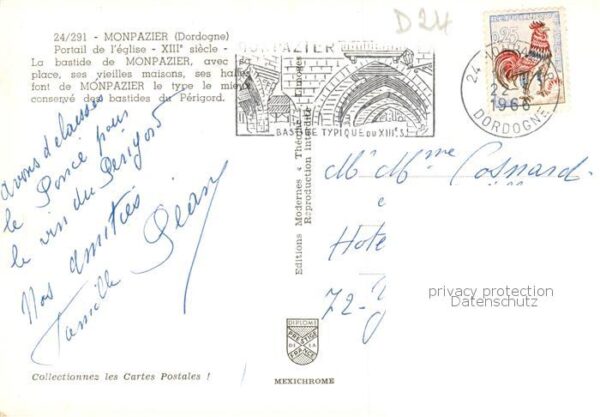 24/291 - MONPAZIER (Dordogne)
Portail de l'église - XIIIe siècle -
La bastide de MONPAZIER, avec
place, ses vieilles maisons, ses halles
font de MONPAZIER le type le mieux
conservé des bastides du Périgord.
D24
MONPAZIER
BASTIDE TYPIQUE DU XIIIe S.
24
22
1966
DORDOGNE
0,25
avons délaissés
le Ponce pour
le vin du Périgord
Nos amitiés
Famille Jean
Editions Modernes « Théojac » Limoges
Reproduction interdite
Mr Mme Cosnard
e
Hote
72-
privacy protection
Datenschutz
DIPLOME
PRESTIGE
DE LA
FRANCE
Collectionnez les Cartes Postales !
MEXICHROME